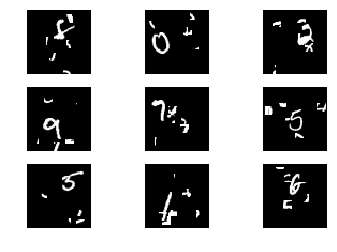 8 0 2
9 7 5
5 4 6